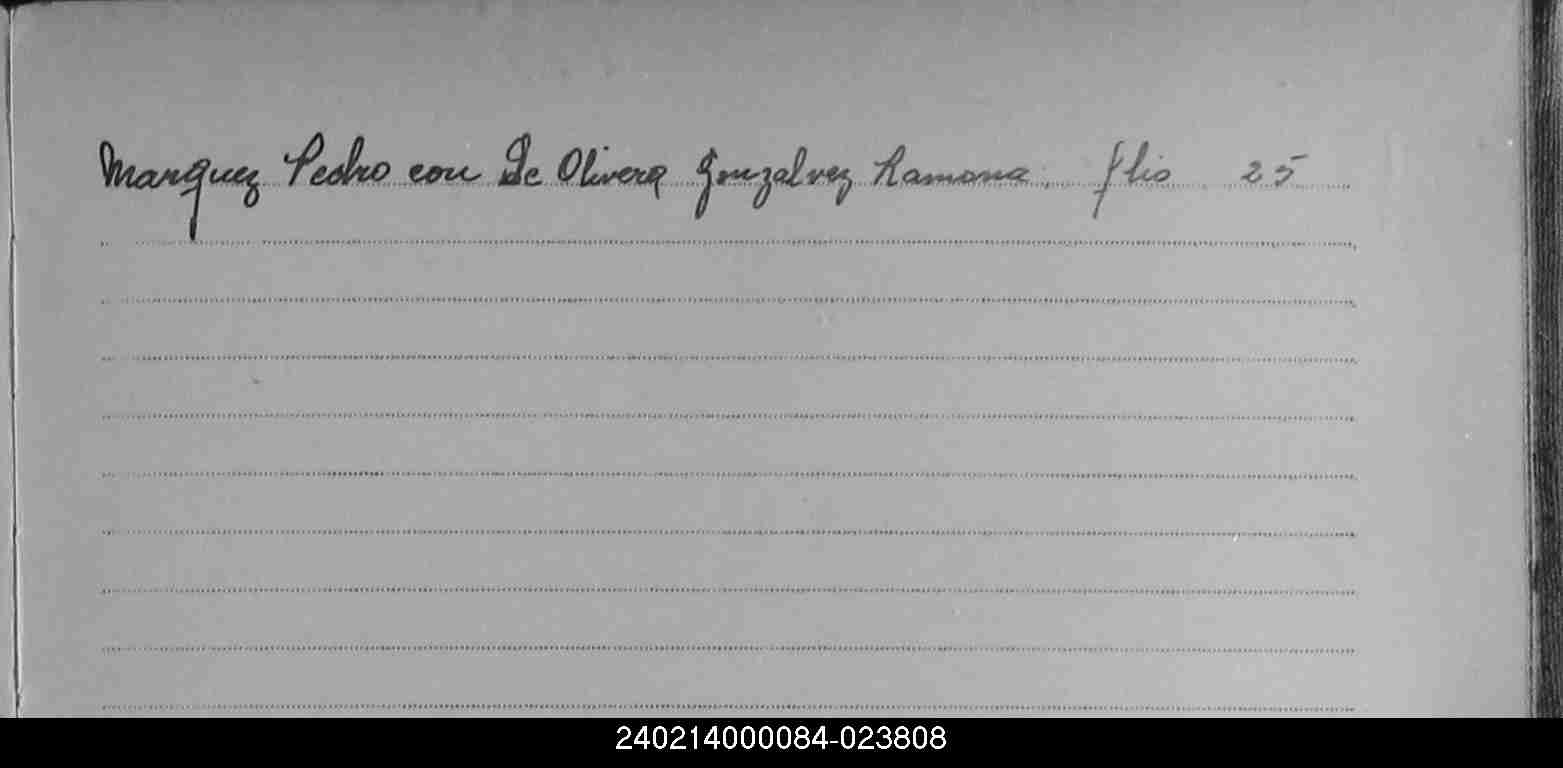 Marquez Pedro con De Olivera Gonzalvez Ramona. flio 25
240214000084-023808